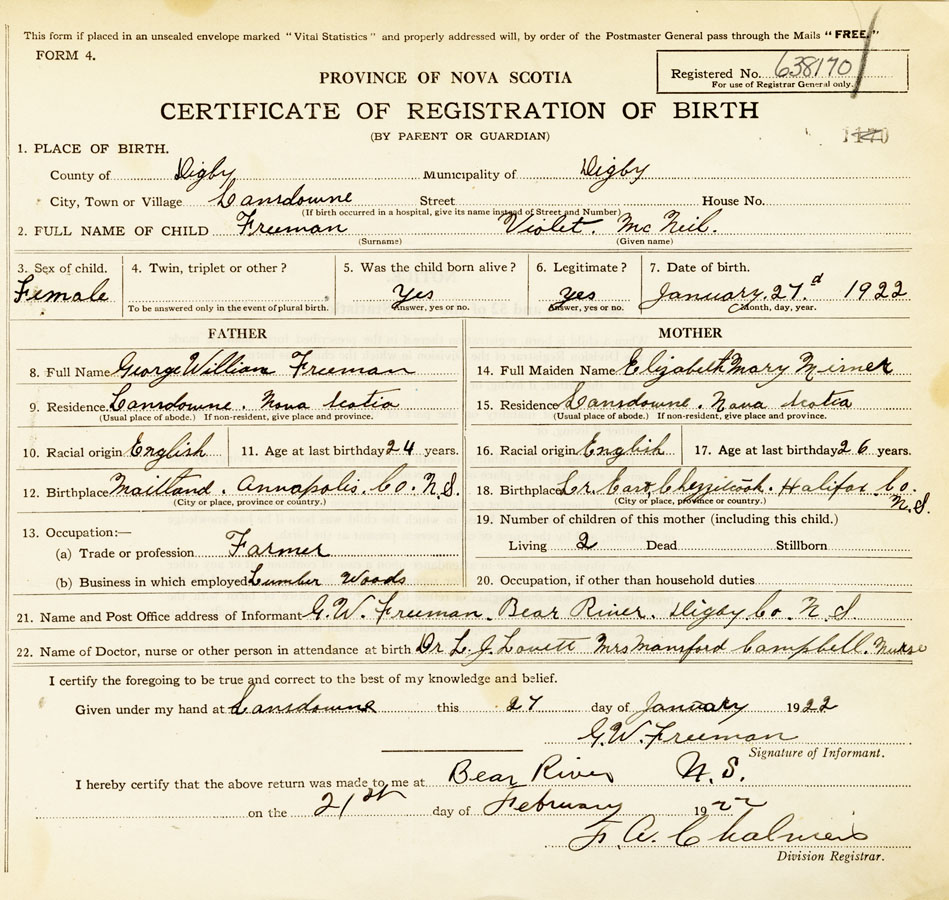 This form if placed in an unsealed envelope marked "Vital Statistics" and properly addressed will, by order of the Postmaster General pass through the Mails "FREE."
FORM 4.
Registered No. 638170
For use of Registrar General only.
PROVINCE OF NOVA SCOTIA
CERTIFICATE OF REGISTRATION OF BIRTH
(BY PARENT OR GUARDIAN)
1170
1. PLACE OF BIRTH.
County of Digby Municipality of Digby
City, Town or Village Lansdowne Street House No.
(If birth occurred in a hospital, give its name instead of Street and Number)
2. FULL NAME OF CHILD Freeman Violet. McNeil.
(Surname) (Given name)
3. Sex of child. 4. Twin, triplet or other? 5. Was the child born alive? 6. Legitimate? 7. Date of birth.
Female Yes yes January. 27.d 1922
To be answered only in the event of plural birth. Answer, yes or no. Answer, yes or no. Month, day, year.
FATHER MOTHER
8. Full Name George William Freeman 14. Full Maiden Name Elizabeth Mary Misner
9. Residence Lansdowne. Nova Scotia 15. Residence Lansdowne. Nova Scotia
(Usual place of abode.) If non-resident, give place and province. (Usual place of abode.) If non-resident, give place and province.
10. Racial origin English 11. Age at last birthday 24 years. 16. Racial origin English 17. Age at last birthday 26 years.
12. Birthplace Maitland. Annapolis. Co. N.S. 18. Birthplace Lr. East Chezzitcook. Halifax Co. N.S.
(City or place, province or country.) (City or place, province or country.)
13. Occupation:— 19. Number of children of this mother (including this child.)
(a) Trade or profession Farmer Living 2 Dead Stillborn
(b) Business in which employed Lumber Woods 20. Occupation, if other than household duties
21. Name and Post Office address of Informant G.W. Freeman. Bear River. Digby Co. N.S.
22. Name of Doctor, nurse or other person in attendance at birth Dr L. J. Lovett Mrs Mansford Campbell. Nurse
I certify the foregoing to be true and correct to the best of my knowledge and belief.
Given under my hand at Lansdowne this 27 day of January 1922
G.W. Freeman
Signature of Informant.
I hereby certify that the above return was made to me at Bear River N.S.
on the 21st day of February 1922
F. A. Chalmers
Division Registrar.